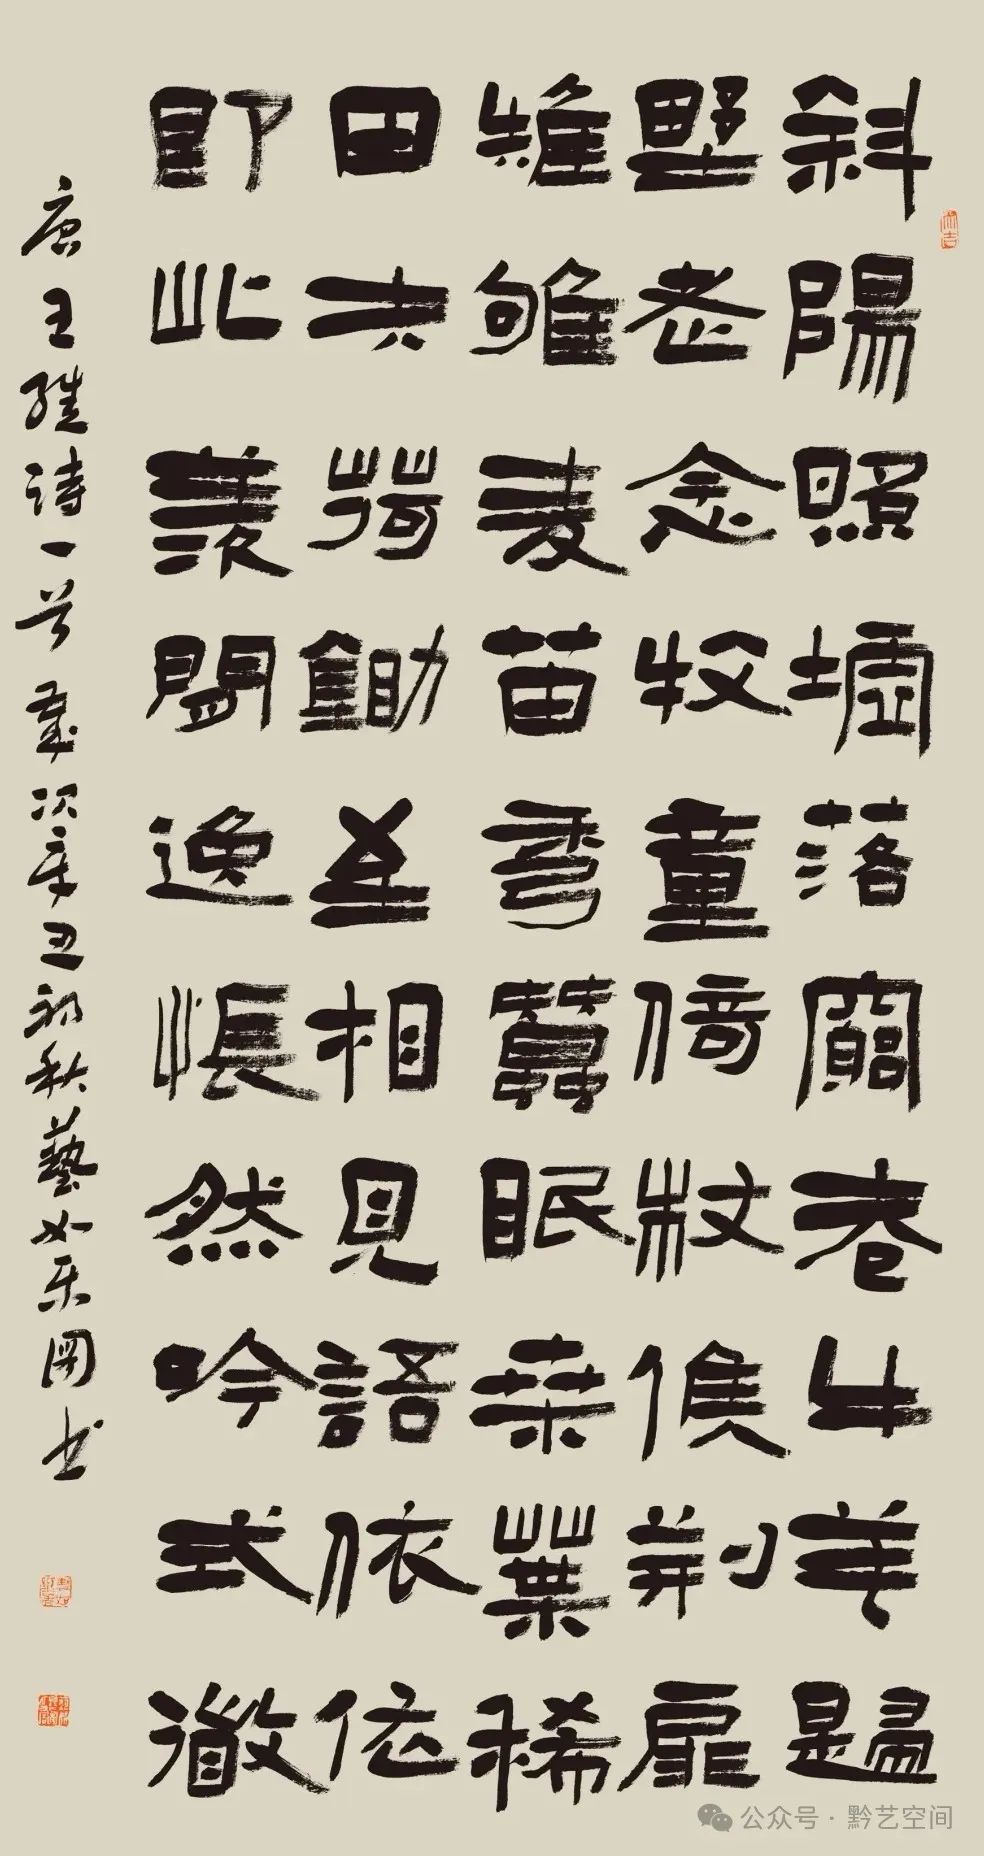 斜陽照墟落窮巷牛羊歸
野老念牧童倚杖候荊扉
雉雊麦苗秀蠶眠桑葉稀
田夫荷鋤至相見語依依
即此羨閒逸悵然吟式微
唐王維詩一首歲次辛丑初秋藝如乐书
公众号 · 黔艺空间